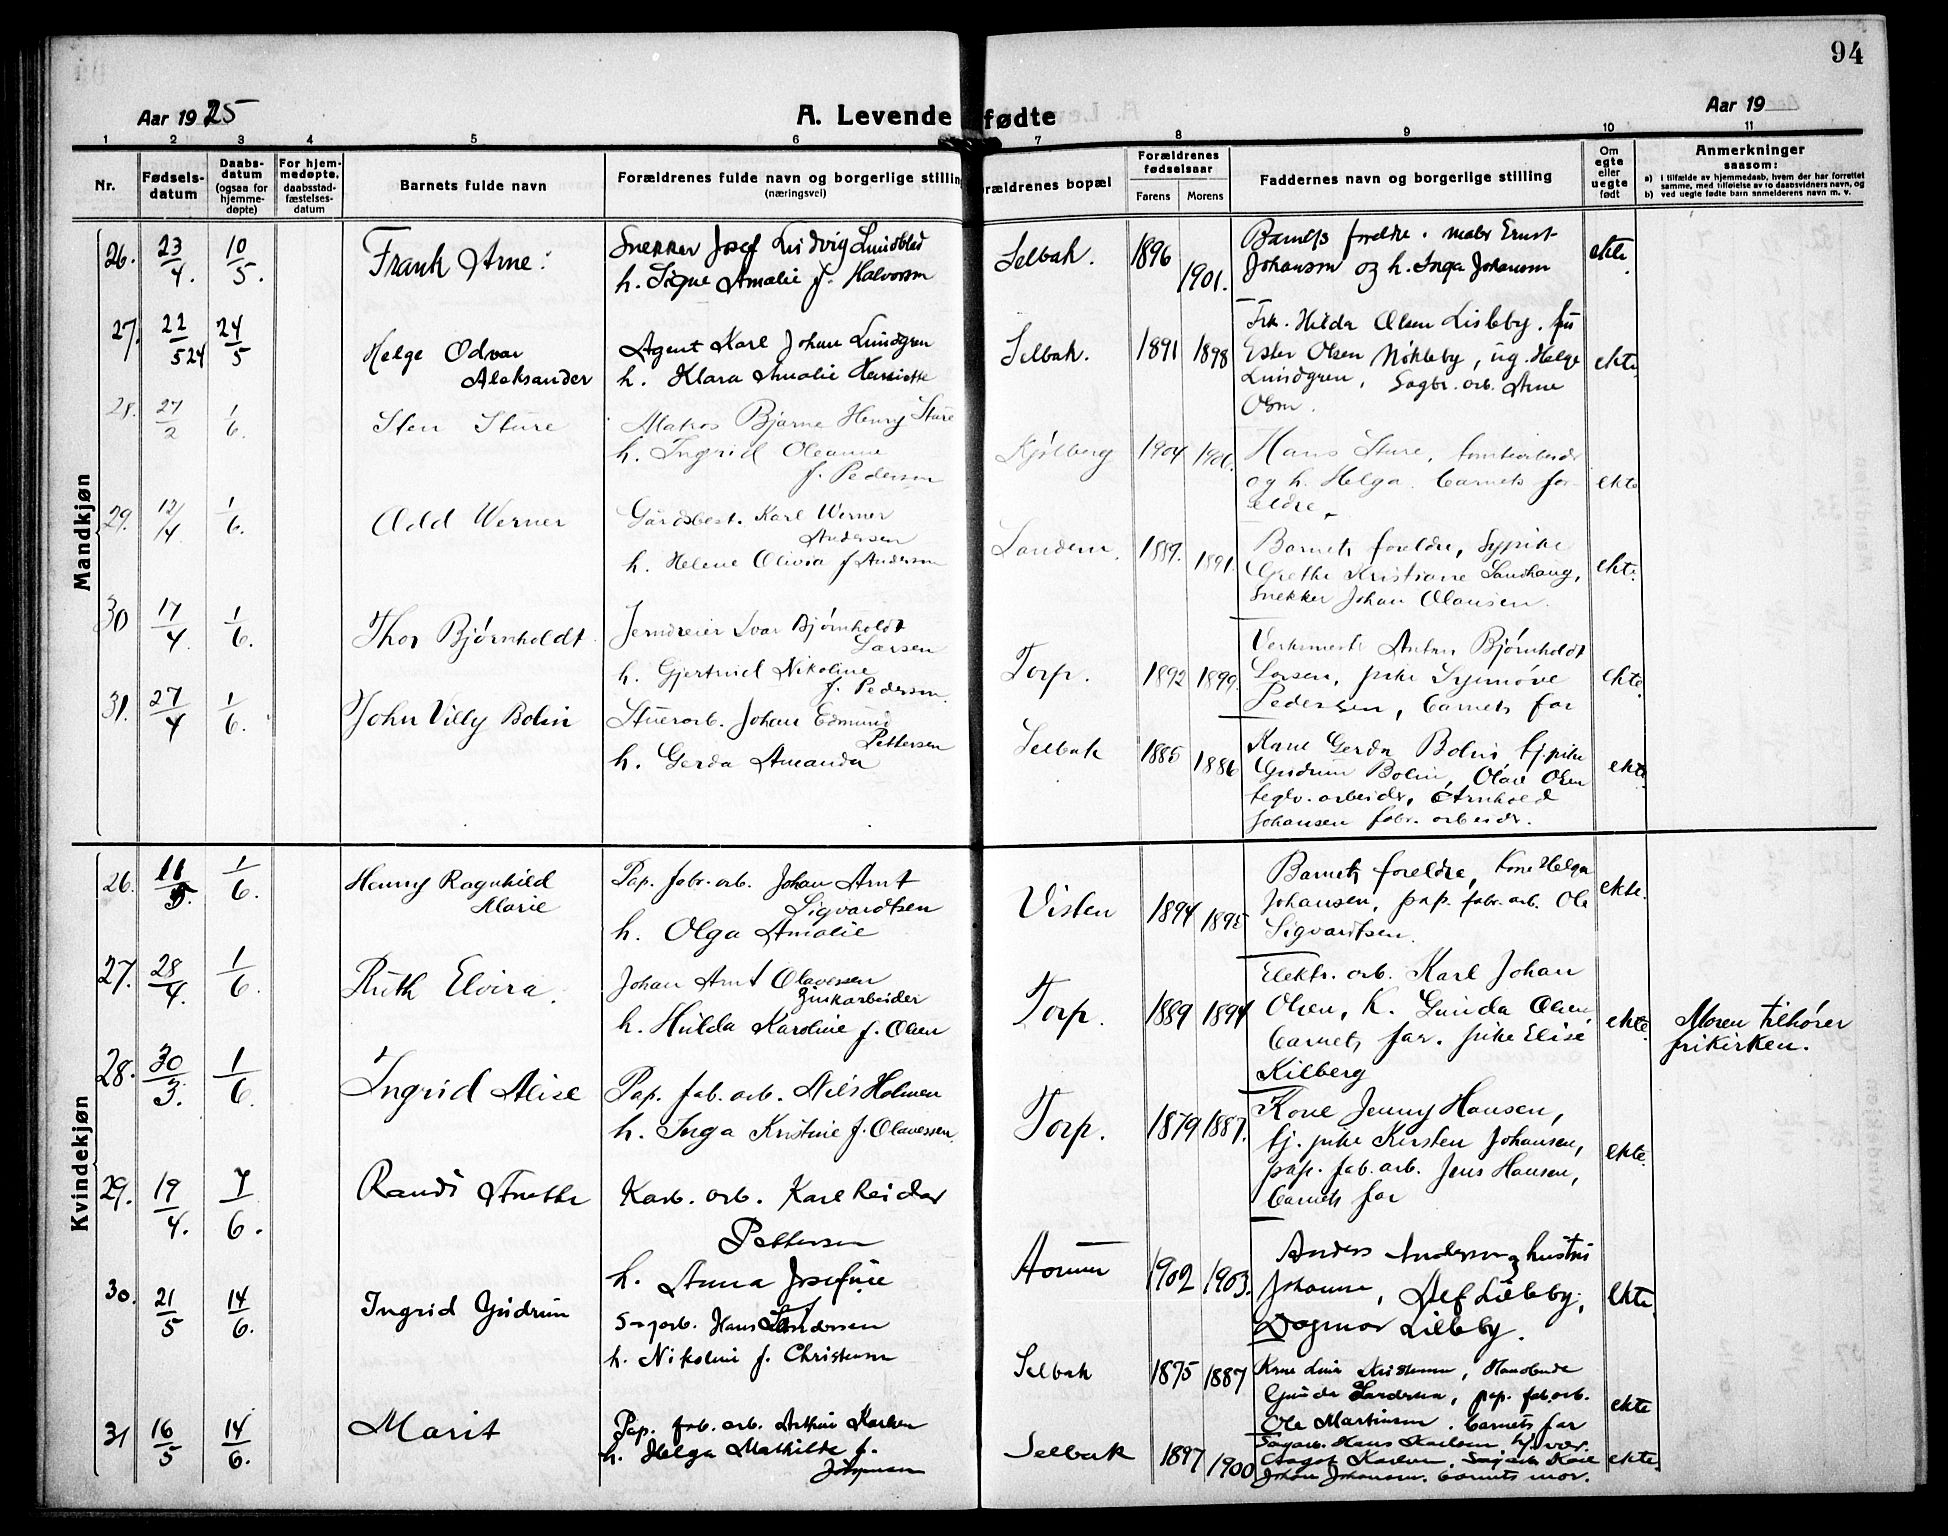 94
Aar 1925
A. Levende fødte
Aar 19
1 2 3 4 5 6 7 8 9 10 11
Nr.
Fødsels-
datum
Daabs-
datum
(ogsaa for
hjemme-
døpte)
For hjem-
medøpte.
daabsstad-
fæstelses-
datum
Barnets fulde navn
Forældrenes fulde navn og borgerlige stilling
(næringsvei)
orældrenes bopæl
Forældrenes
fødselsaar
Farens Morens
Faddernes navn og borgerlige stilling
Om
egte
eller
uegte
født
Anmerkninger
saasom:
a) I tilfælde av hjemmedaab, hvem der har forrettet
samme, med tilføielse av to daabsvidners navn, og
b) ved uegte fødte barn anmelderens navn m. v.
Mandkjøn
26. 23/4. 10/5. Frank Arne. Snekker Josef Ludvig Lundblad
h. Signe Amalie f. Halvorsen
Selbak. 1896 1901.
Barnets foreldre. maler Ernst
Johansen og h. Inga Johansen
ekte.
27. 22/5 24 24/5 Helge Odvar
Aleksander
Agent Karl Johan Lundgren
h. Klara Amalie Henriette
Selbak. 1891 1898
Frk. Hilda Olsen Lisleby. fru
Ester Olsen Nøkleby, ug. Helge
Lundgren, Sagbr. arb. Arne
Olsen.
ekte.
28. 27/2 1/6. Sten Sture
Matros Bjarne Henry Sture
h. Ingrid Oleanne
f. Pedersen
Kjølberg 1904
Hans Sture,
og h. Helga. barnets for-
eldre.
ekte
29. 12/4 1/6. Odd Werner
Gårdsbest. Karl Werner
Andersen
h. Helene Olivia f. Andersen
1889. 1891.
Barnets foreldre, Sypike
Grethe Kristiane Sandhaug,
Snekker Johan Olausen.
ekte.
30 17/4. 1/6. Thor Bjørnholdt
Jerndreier Ivar Bjørnholdt
Larsen
h. Gjertrud Nikoline
f. Pedersen
Torp. 1892 1899.
Verksmest. Anton Bjørnholdt
Larsen, pike Synnøve
Pedersen, barnets far
ekte.
31. 27/4 1/6. John Villy Bolin
Stuerarb. Johan Edmund
Pettersen
h. Gerda Amanda
Selbak 1885 1886
Kone Gerda Bolin hj. pike
Gudrun Bolin, Olav Olsen
teglv. arbeider, Arnhold
Johansen fabr. arbeider.
ekte.
Kvindekjøn
26. 11/5. 1/6. Henny Ragnhild
Marie
Pap. fabr. arb. Johan Arnt
Sigvardtsen
h. Olga Amalie
Visten 1894 1895
Barnets foreldre, kone Helga
Johansen, pap. fabr. arb. Ole
Sigvardtsen.
ekte.
27. 28/4. 1/6. Ruth Elvira.
Johan Arnt Olavessen
Zinkarbeider
h. Hulda Karoline f. Olsen
Torp. 1889 1894
Elektr. arb. Karl Johan
Olsen, K. Gunda Olsen,
barnets far. pike Elise
Kilberg
ekte.
Moren tilhører
frikirken.
28. 30/3. 1/6. Ingrid Alise
Pap. fab. arb. Nils Holmen
h. Inga Kristine f. Olavessen.
Torp. 1879 1887.
Kone Jenny Hansen,
hj. pike Kirsten Johansen,
pap. fab. arb. Jens Hansen,
barnets far
ekte.
29. 19/4. 7/6. Randi Anethe
Karb. arb. Karl Reidar
Pettersen
h. Anna Josefine
1902 1903.
Anders Andersen og hustru
Johanne, Alf Lilleby,
Dagmar Lilleby.
ekte.
30. 21/5 14/6. Ingrid Gudrun
Sagarb. Hans Sandersen
h. Nikoline f. Christensen
Selbak 1875 1887
Kone Lina Kristensen,
Gunda pap. fab. arb.
Ole Martinsen. barnets far
ekte
31 16/5 14/6. Marit
Pap. fab. arb. Arthur Karlsen
h. Helga Mathilde f.
Jörgensen
Selbak 1897 1900
Sagarb. Hans Karlsen, hj. vær.
Aagot Karlsen, Sagarb. Karl
Johan Johansen. barnets mor.
ekte.